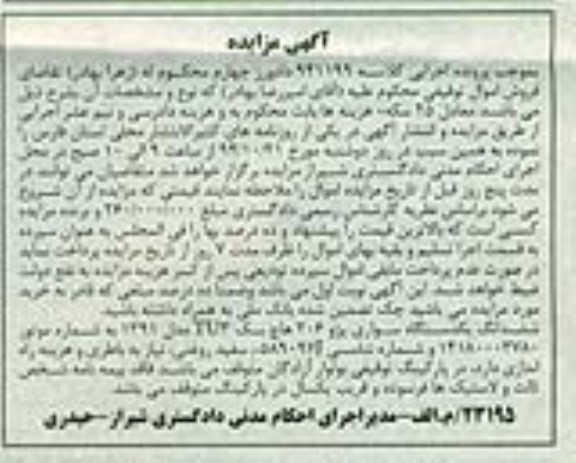 آگهی مزایده
بموجب پرونده اجرایی کلاسه ۹۴۱۱۹۹ دادورز چهارم محکوم له (زهرا بهادر) تقاضای
فروش اموال توقیفی محکوم علیه (آقای امیررضا بهادر) که نوع و مشخصات آن بشرح ذیل
می باشد معادل ۲۵ سکه- هزینه ها بابت محکوم به و هزینه دادرسی و نیم عشر اجرایی
از طریق مزایده و انتشار آگهی در یکی از روزنامه های کثیرالانتشار محلی استان فارس را
نموده به همین سبب در روز دوشنبه مورخ از ساعت ۹ الی ۱۰ صبح در محل
اجرای احکام مدنی دادگستری شیراز مزایده برگزار خواهد شد متقاضیان می توانند در
مدت پنج روز قبل از تاریخ مزایده اموال را ملاحظه نمایند قیمتی که مزایده از آن شروع
می شود براساس نظریه کارشناس رسمی دادگستری مبلغ و برنده مزایده
کسی است که بالاترین قیمت را پیشنهاد و ده درصد بها را فی المجلس به عنوان سپرده
به قسمت اجرا تسلیم و بقیه بهای اموال را ظرف مدت ۷ روز از تاریخ مزایده پرداخت نماید
در صورت عدم پرداخت مابقی اموال سپرده تودیعی پس از کسر هزینه مزایده به نفع دولت
ضبط خواهد شد. این آگهی نوبت اول می باشد وضمنا ده درصد مبلغی که قادر به خرید
مورد مزایده می باشید چک تضمین شده بانک ملی به همراه داشته باشید.
ششدانگ یکدستگاه سواری پژو ۲۰۶ هاچ بک TU3 مدل ۱۳۹۱ به شماره موتور
و شماره شاسی سفید روغنی، نیاز به باطری و هزینه راه
اندازی دارد، در پارکینگ توقیفی بولوار آزادگان متوقف می باشد. فاقد بیمه نامه شخص
ثالث و لاستیک ها فرسوده و قریب یکسال در پارکینگ متوقف می باشد.
۲۳۱۹۵/م.الف-مدیراجرای احکام مدنی دادگستری شیراز-حیدری